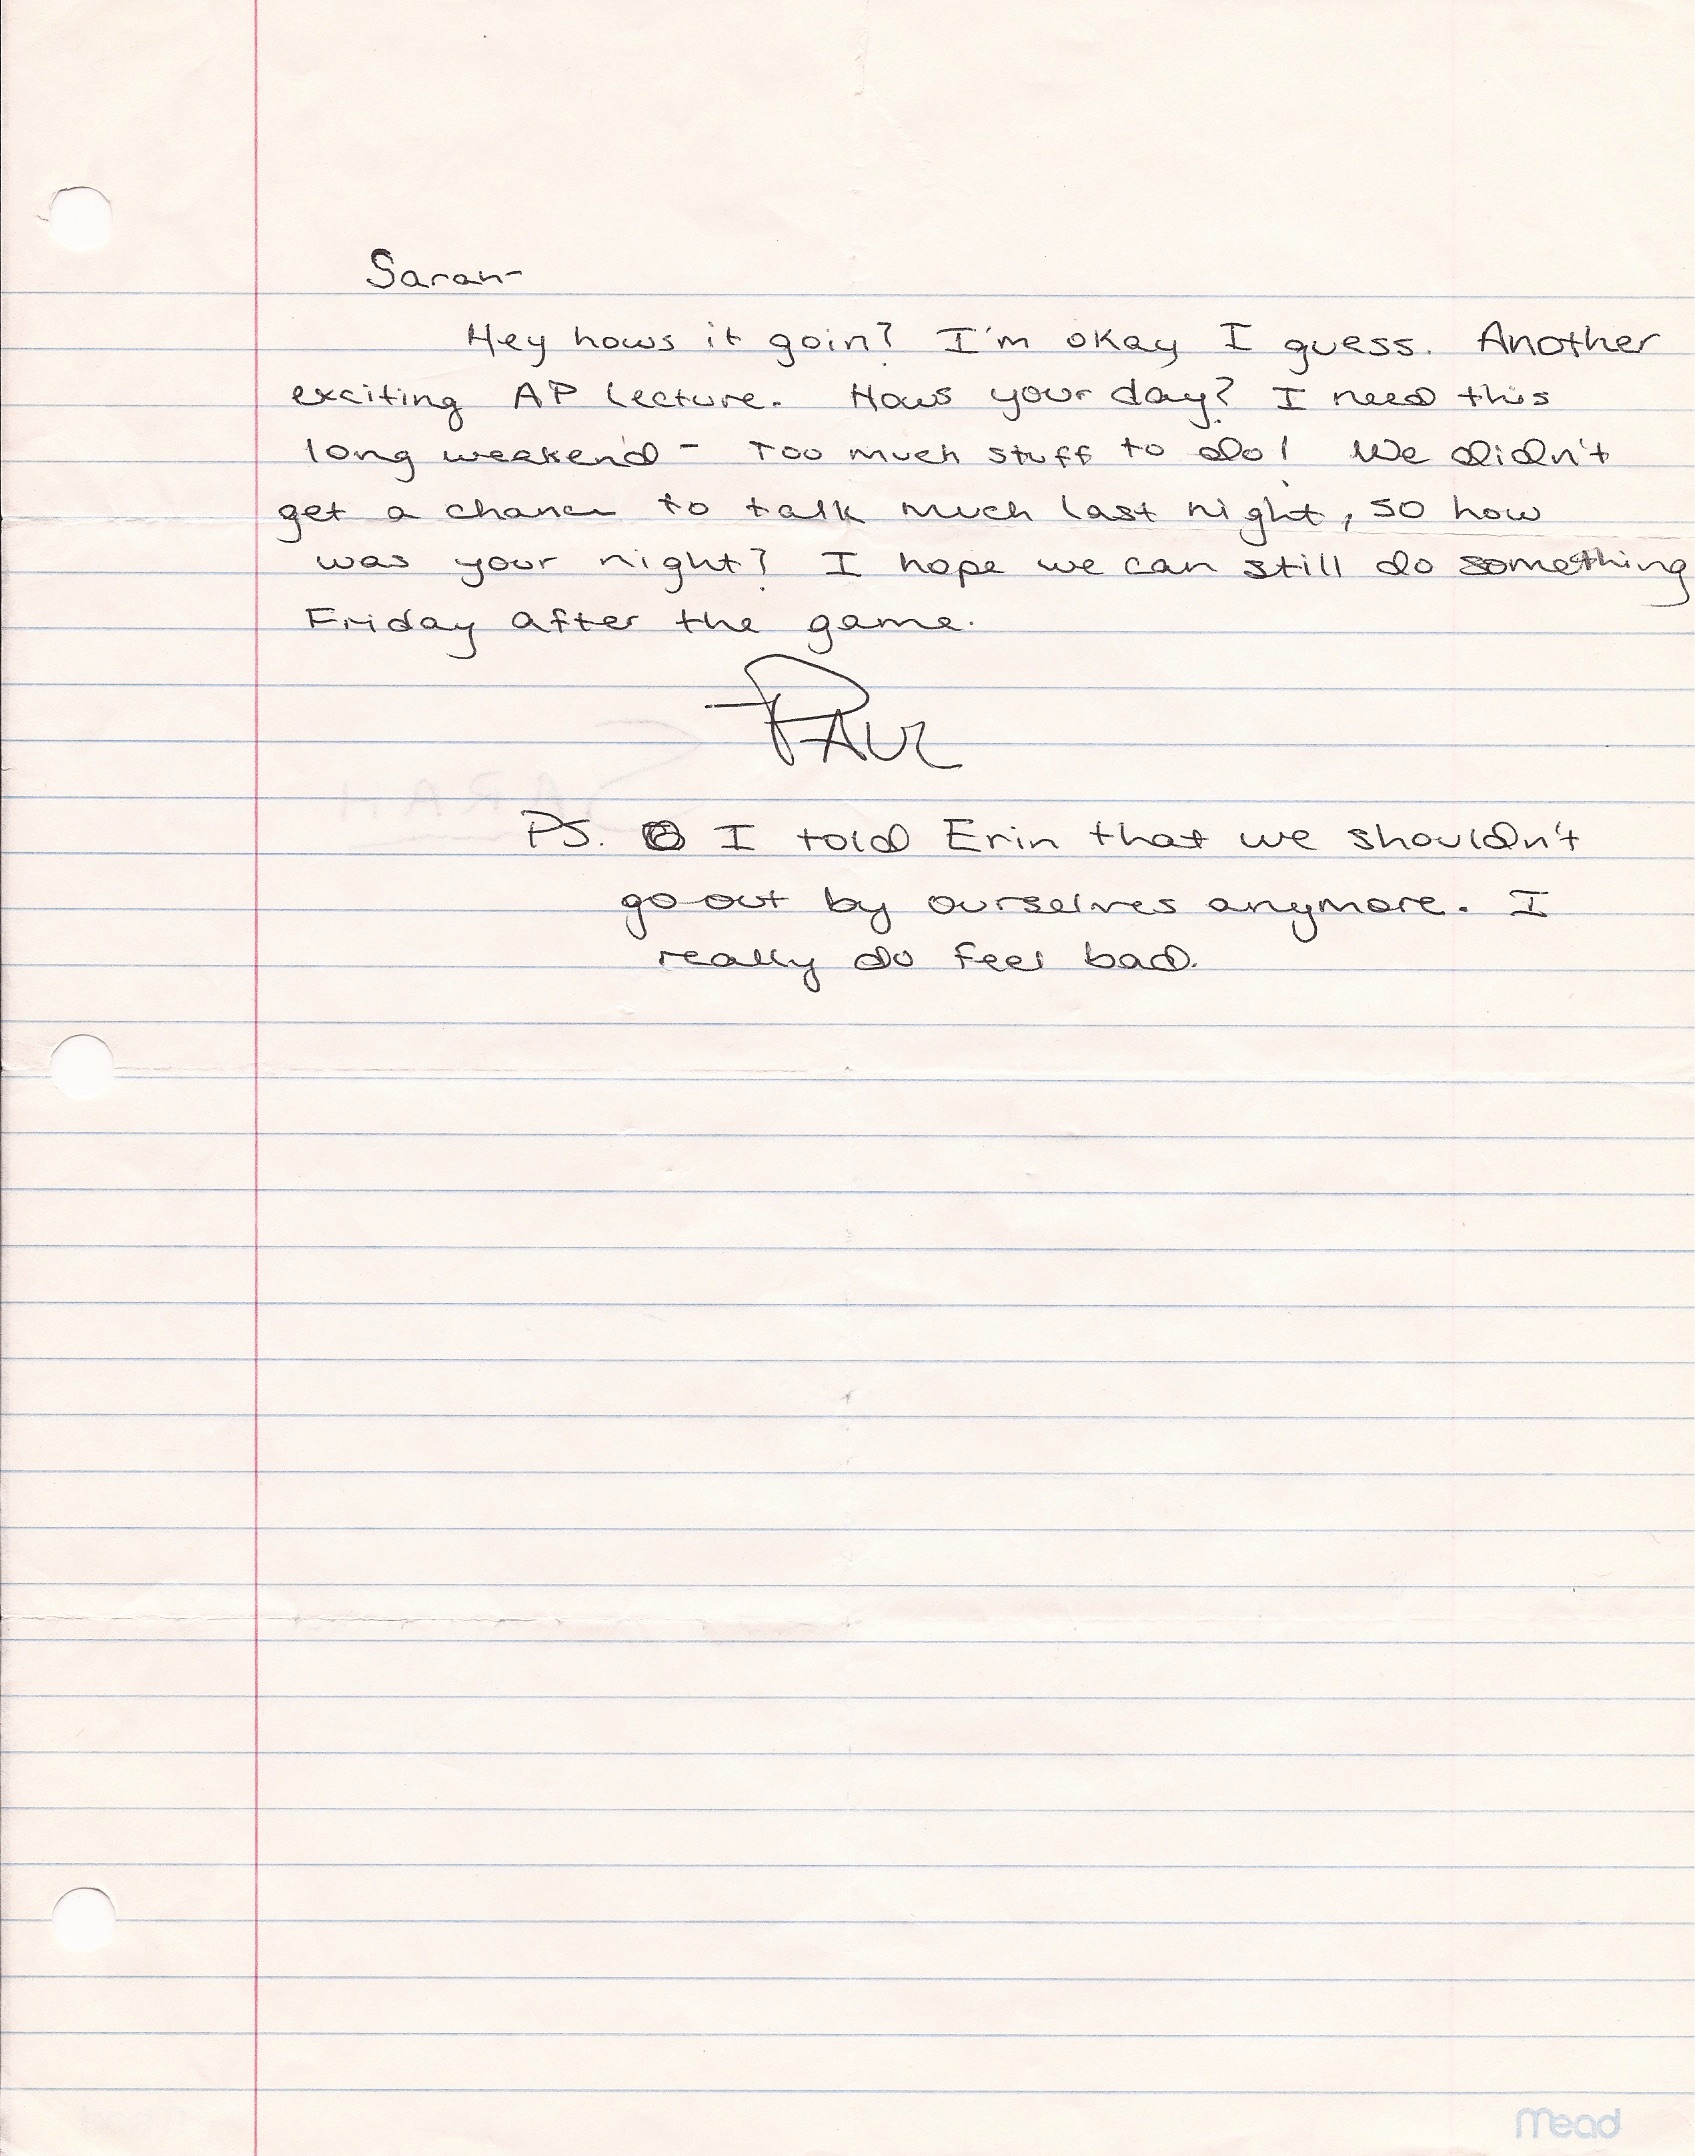 Sarah-
Hey hows it goin? I'm okay I guess. Another
exciting AP Lecture. Hows your day? I need this
long weekend - Too much stuff to do! We didn't
get a chance to talk much last night, so how
was your night? I hope we can still do something
Friday after the game.
PAUL
PS. I told Erin that we shouldn't
go out by ourselves anymore. I
really do feel bad.
SARAH
Mead